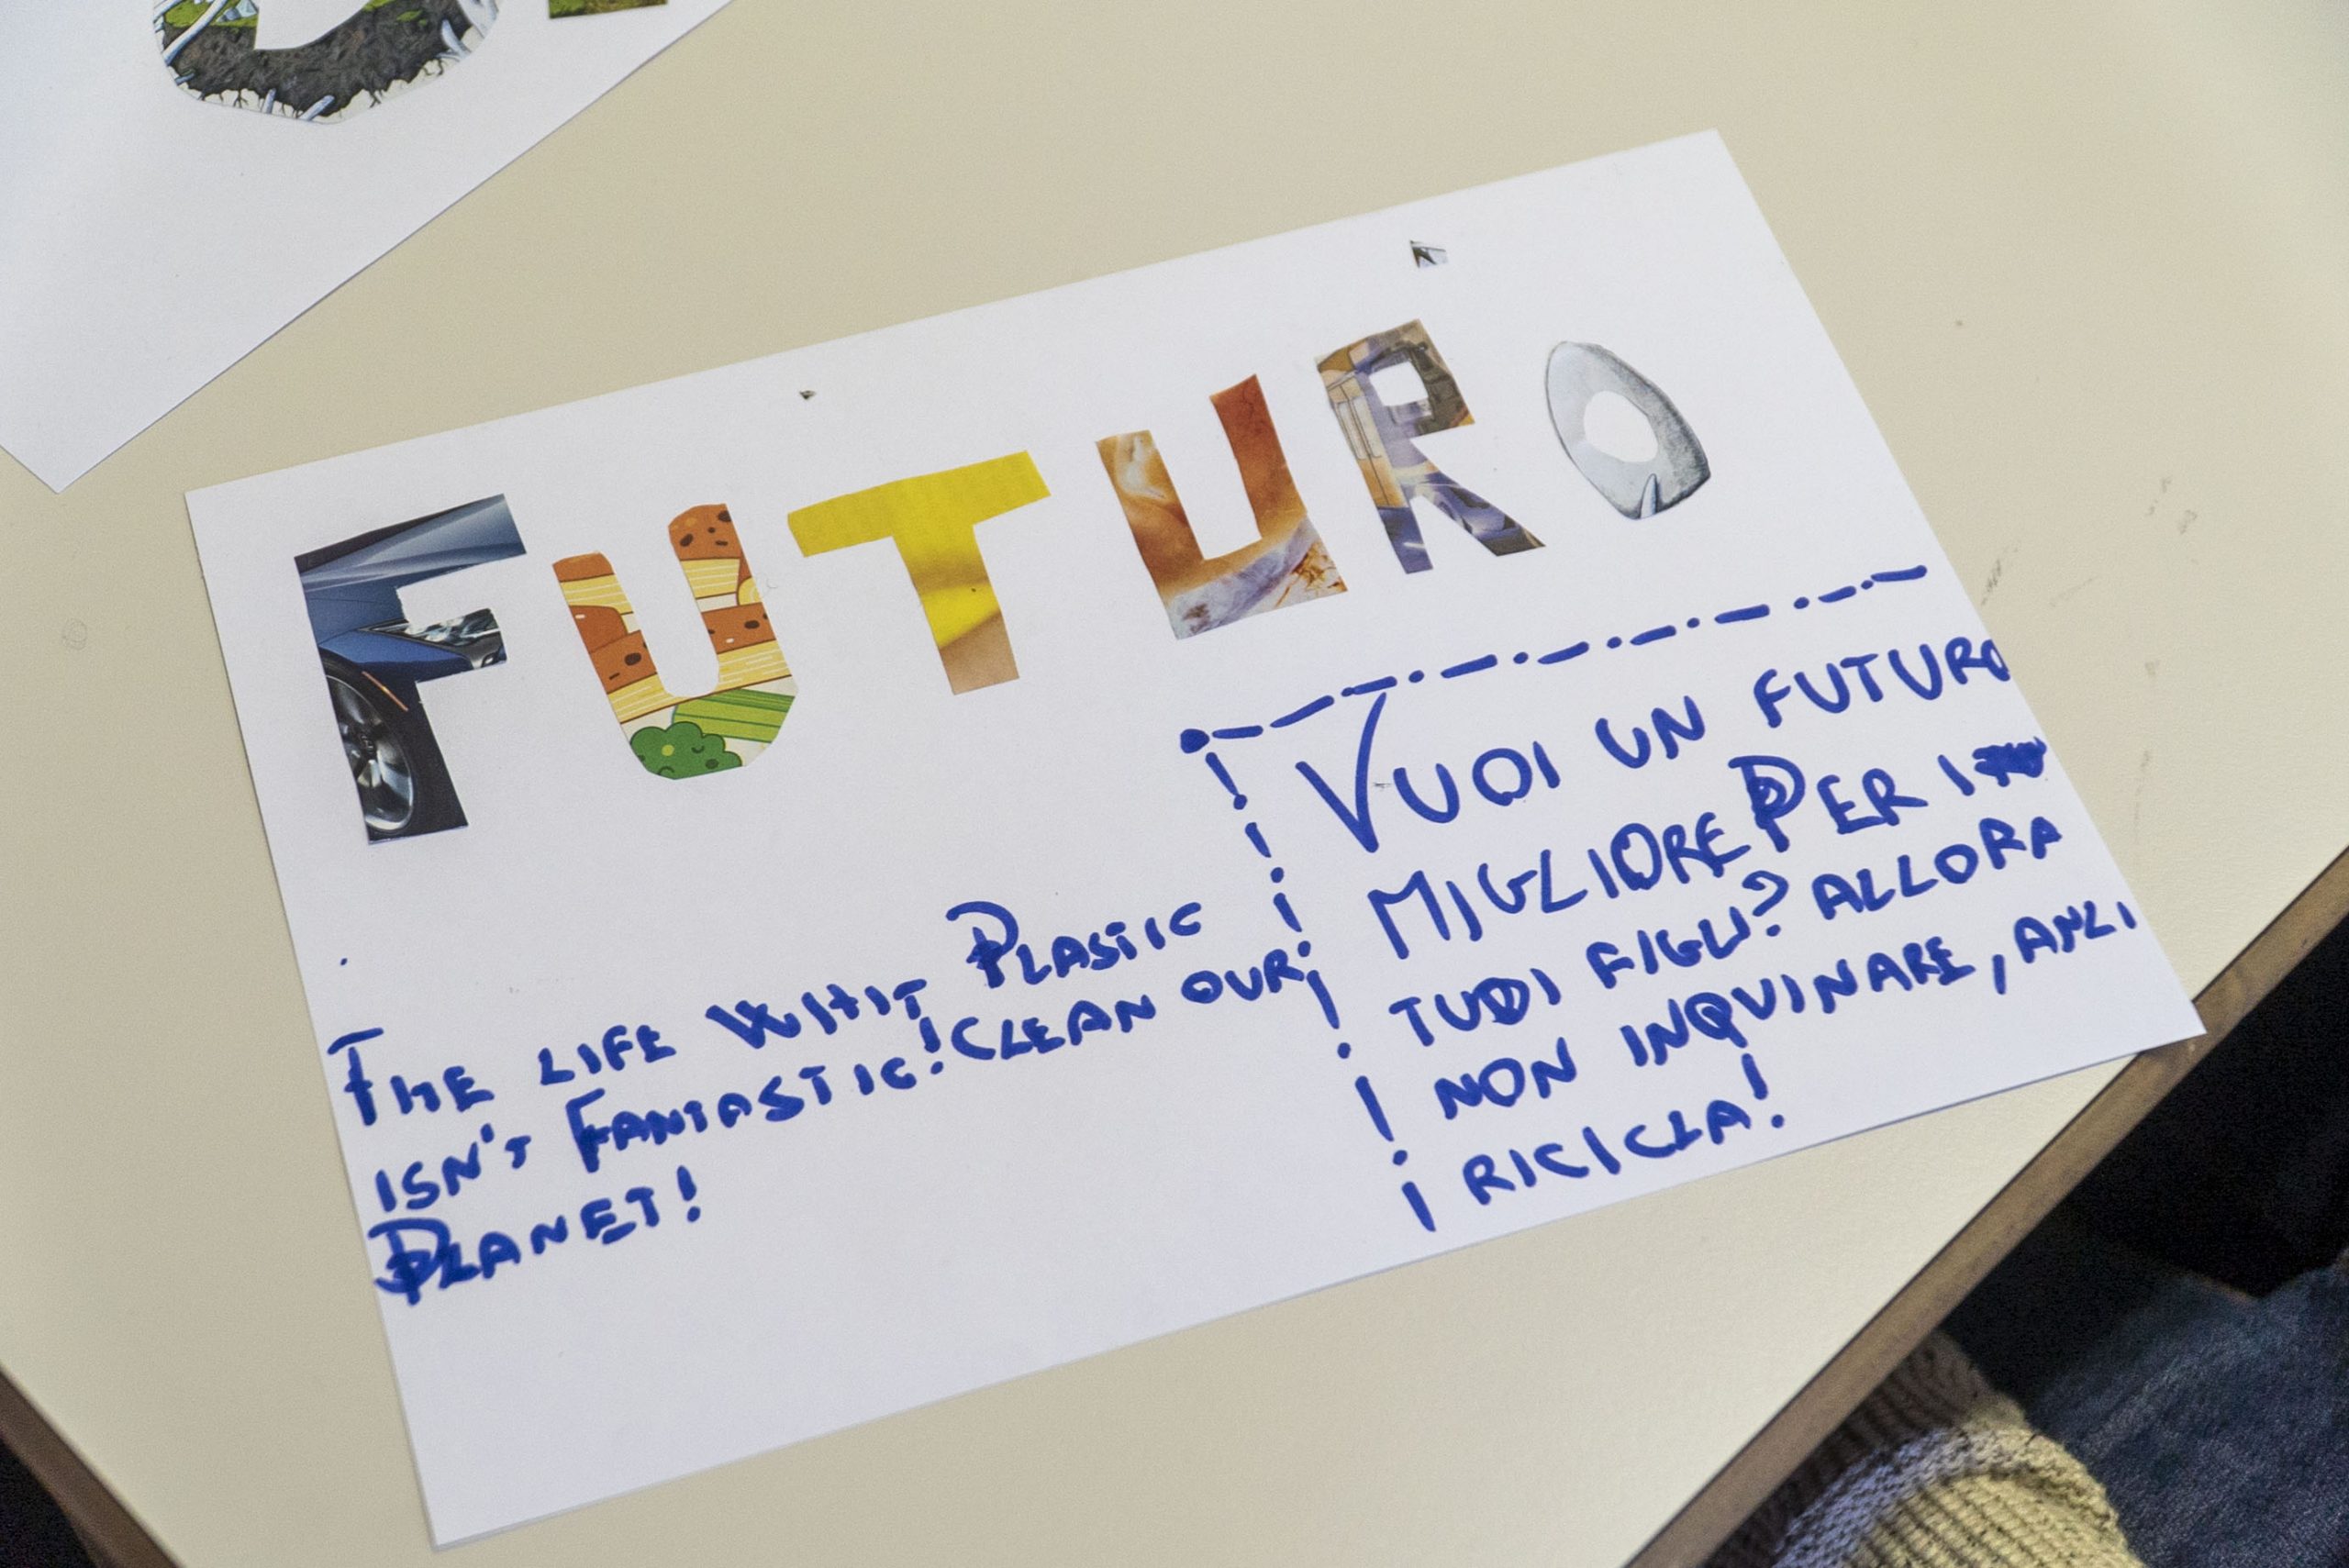 FUTURO
THE LIFE WHIT PLASTIC
ISN'T FANTASTIC! CLEAN OUR
PLANET!
VUOI UN FUTURO
MIGLIORE PER I
TUOI FIGLI? ALLORA
NON INQUINARE, ANZI
RICICLA!